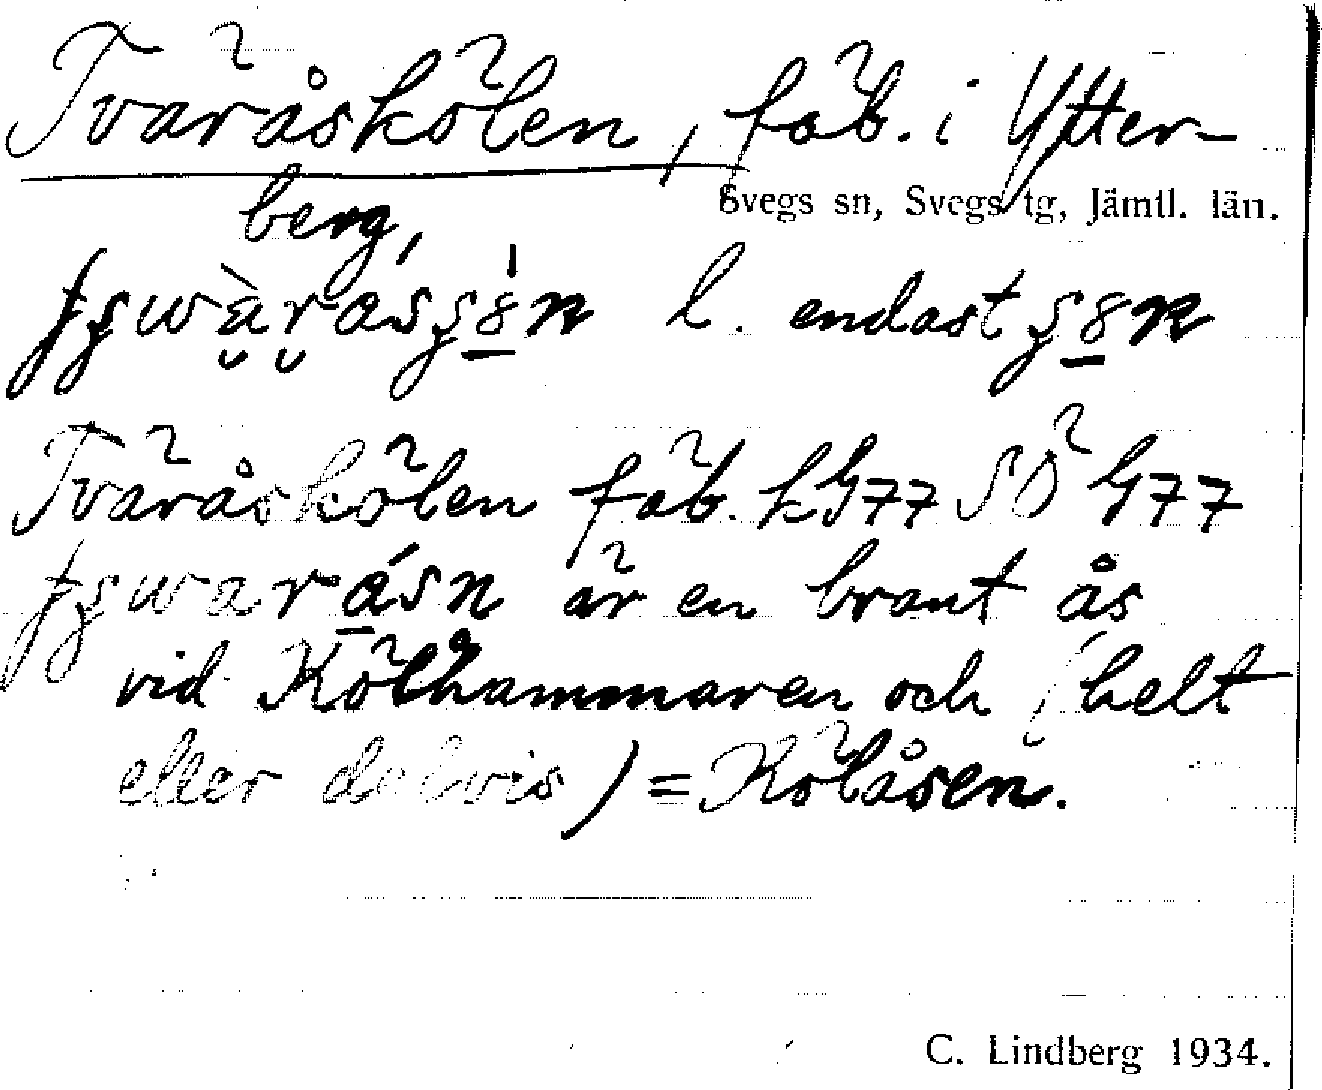 Tväråskölen, fäb. i Ytter-
Svegs sn, Svegs tg, Jämtl. län.
berg,
l. endast
Tväråskölen fäb. kG77 SÖ G77
är en brant ås
vid Kölhammaren och (helt
eller delvis) = Kölåsen.
C. Lindberg 1934.